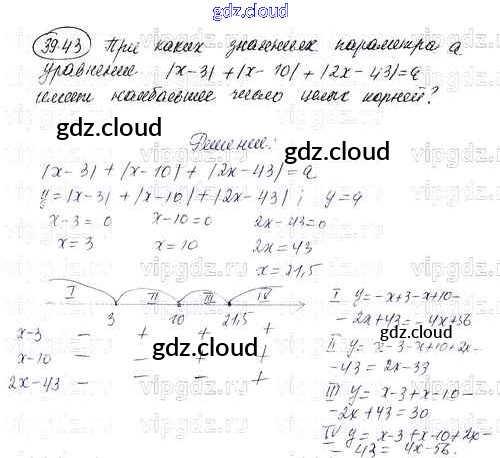 gdz.cloud
39.43 При каких значениях параметра a
уравнение |x-3|+|x-10|+|2x-43|=a
имеет наибольшее число целых корней?
gdz.cloud
gdz.cloud
Решение:
|x-3|+|x-10|+|2x-43|=a
gdz.cloud
y=|x-3|+|x-10|+|2x-43|; y=a
x-3=0 x-10=0 2x-43=0
x=3 x=10 2x=43
x=21,5
I II III IV
3 10 21,5
x-3 - + + +
x-10 - - + +
2x-43 - - - +
gdz.cloud
I y=-x+3-x+10-
-2x+43=-4x+56
gdz.cloud
II y=x-3-x+10+2x-
-43=2x-33
III y=x-3+x-10-
-2x+43=30
IV y=x-3+x-10+2x-
-43=4x-56.
gdz.cloud